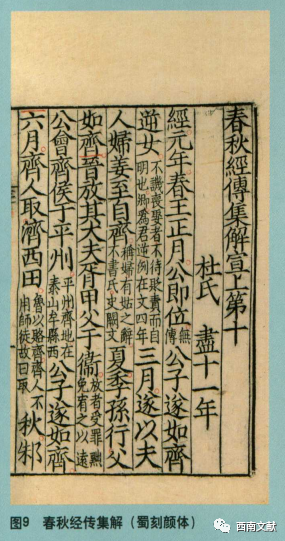 春秋經傳集解宣上第十
杜氏 盡十一年
經元年春王正月公即位無傳公子遂如齊
逆女不譏喪娶者不待貶責而自明也卿為君逆例在文四年三月遂以夫
人婦姜至自齊稱婦有姑之辭不書氏史闕文夏季孫行父
如齊晉放其大夫胥甲父于衞放者受罪黜免宥之以遠
公會齊侯于平州平州齊地在泰山牟縣西公子遂如齊
六月齊人取濟西田魯以賂齊齊人不用師徒故曰取秋邾
图9 春秋经传集解（蜀刻颜体）
西南文献